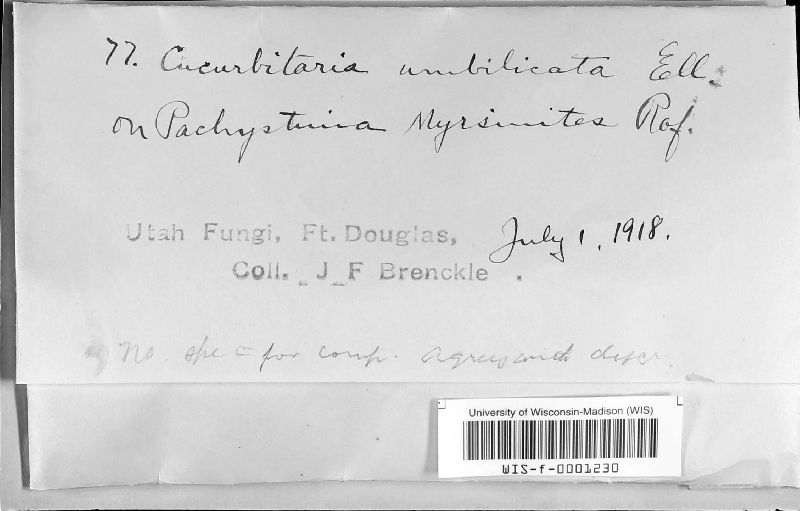 77. Cucurbitaria umbilicata Ell.
on Pachystima Myrsinites Raf.
Utah Fungi, Ft. Douglas, July 1, 1918.
Coll. J F Brenckle .
No. spec for comp. agrees with descr.
University of Wisconsin-Madison (WIS)
WIS-f-0001230